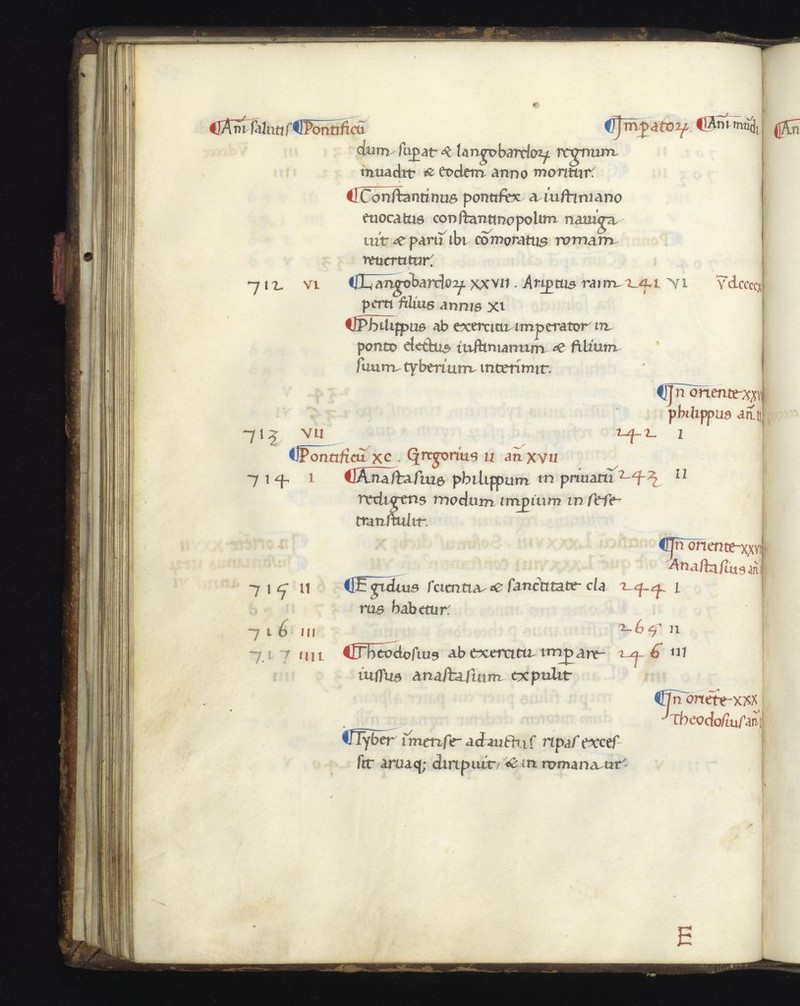 ¶Añi salutis ¶Pontificū ¶Imꝑatoꝝ ¶Añi mūdi
dum suꝑat & langobardoꝝ regnum
inuadit & eodem anno moritur.
¶Constantinus pontifex a iustiniano
euocatus constantinopolim nauiga
uit & parū ibi cōmoratus romam
reuertitur.
712 VI ¶Langobardoꝝ XXVII. Ariꝑtus raim 241 VI V̄dcccc
perti filius annis XI
¶Philippus ab exercitu imperator in
ponto electus iustinianum & filium
suum tyberium interimit.
¶In oriente XXVI
philippus añ. II
713 VII 242 I
¶Pontificū XC. Gregorius II añ XVII
714 I ¶Anastasius philippum in priuatū 243 II
redigens modum imꝑium in sese
transtulit.
¶In oriente XXVI
Anastasius añ
715 II ¶Egidius scientia & sanctitate cla 244 I
rus habetur.
716 III 265 II
717 IIII ¶Theodosius ab exercitu imꝑare 246 III
iussus anastasium expulit
¶In oriēte XXX
Theodosius añ
¶Tyber īmense adauctus ripas exces
sit aruaq; diripuit, & in romana ur
E